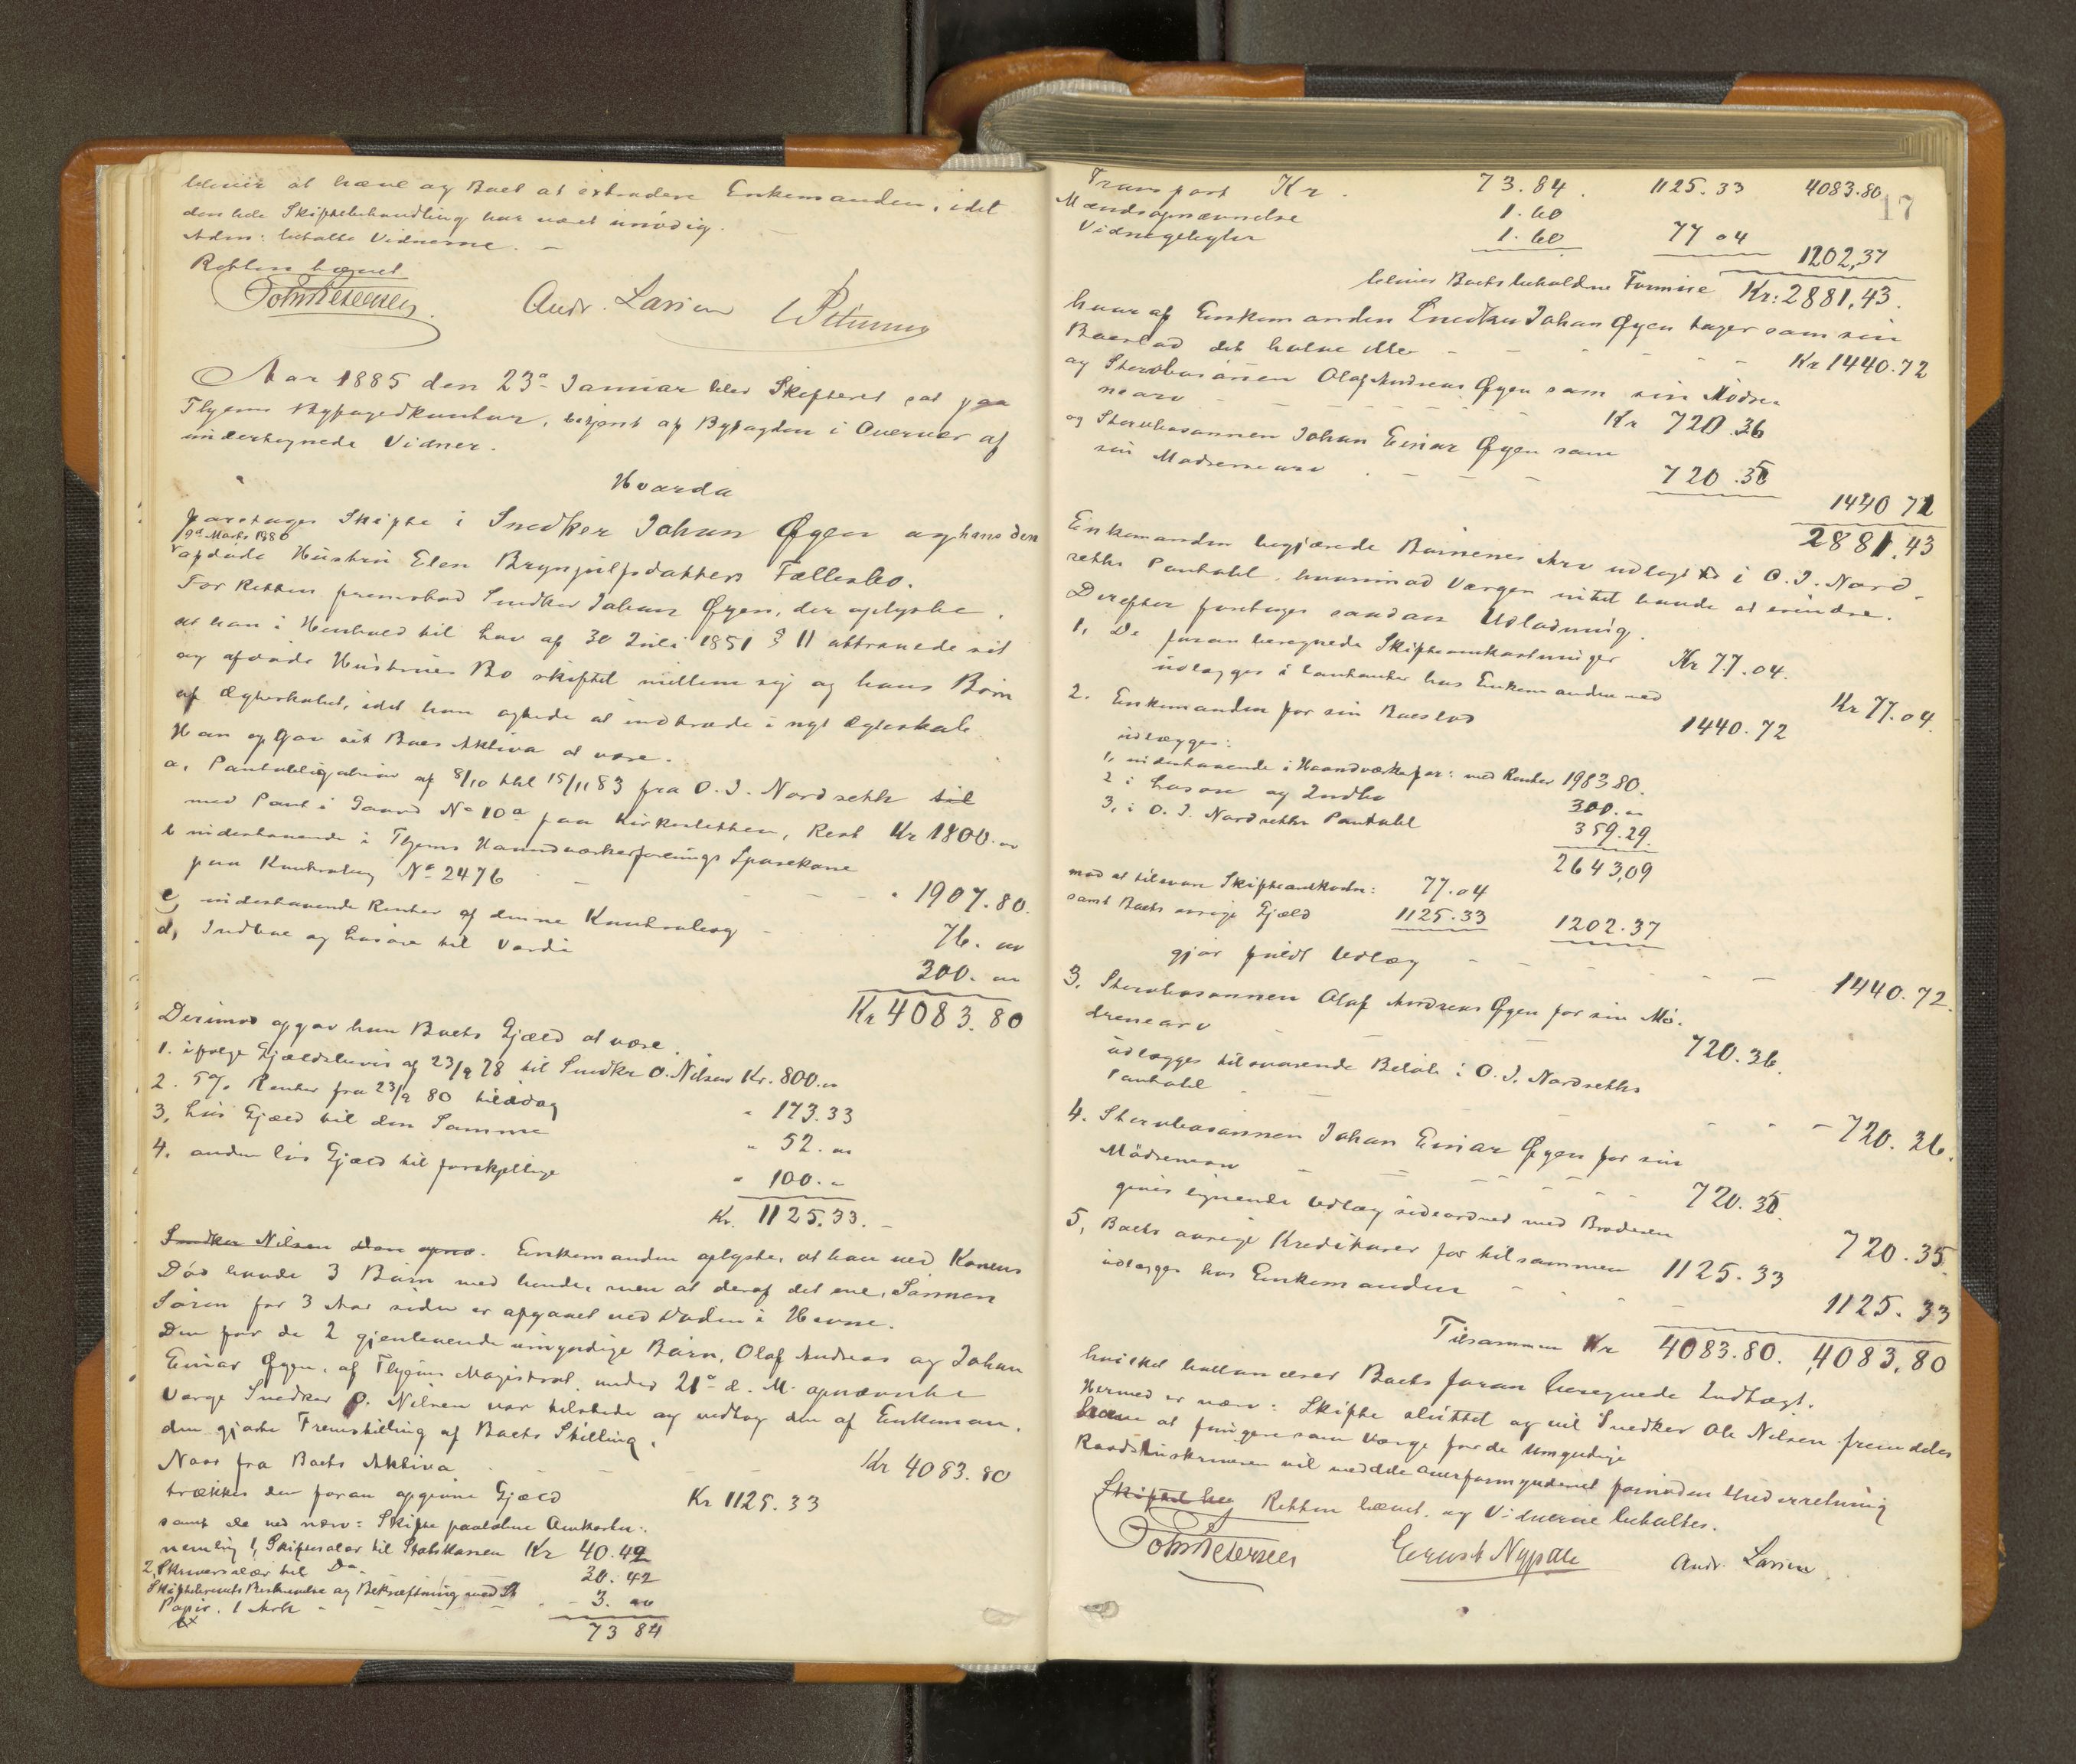 bliver at hæve og Boet at extradere Enkemanden, idet
den hele Skiftebehandling har været unødig. —
Adm: betalte Vidnerne. —
Retten hævet
John Petersen. Andr. Larsen
Aar 1885 den 23de Januar blev Skifteret sat paa
Thjems Byfogedkontor, betjent af Byfogden i Overvær af
undertegnede Vidner.
Hvorda
foretages Skifte i Snedker Johan Øyen og hans den
9de Marts 1880
afdøde Hustru Elen Brynjulfsdatters Fællesbo.
For Retten fremstod Snedker Johan Øyen, der oplyste,
at han i Henhold til Lov af 30 Juli 1851 § 11 attraaede sit
og afdøde Hustrues Bo skiftet mellem sig og hans Børn
af Ægteskabet, idet han agtede at indtræde i nyt Ægteskab.
Han opgav sit Boes Aktiva at være.
a, Pantobligation af 8/10 thl 15/11 83 fra O. J. Nordseth til
med Pant i Gaard No 10a paa Kirkesletten, Rest Kr 1800. „
b indestaaende i Thjems Haandværkerforenings Sparekasse
paa Kontrabog No 2476 — — — „ 1907.80.
c, indestaaende Renter af denne Kontrabog — 76. „
d, Indbue og Løsøre til Værdi 300. „
Kr 4083.80
Derimod opgav han Boets Gjæld at være.
1. ifølge Gjældsbevis af 23/9 78 til Snedker O. Nilsen Kr. 800. „
2. 5% Renter fra 23/9 80 til idag „ 173.33
3, Løs Gjæld til den Samme „ 52. „
4. anden løs Gjæld til forskjellige „ 100. „
Kr. 1125.33. —
Snedker Nilsen Den opnæ. Enkemanden oplyste, at han ved Konens
Død havde 3 Børn med hende, men at deraf det ene, Sønnen
Søren for 3 Aar siden er afgaaet ved Døden i Hevne.
Den for de 2 gjenlevende umyndige Børn, Olaf Andreas og Johan
Einar Øyen, af Thjems Magistrat under 21de d. M. opnævnte
Værge Snedker O. Nilsen var tilstede og vedtog den af Enkeman-
den gjorte Fremstilling af Boets Stilling.
Naar fra Boets Aktiva — — — Kr 4083.80
trækkes den foran opgivne Gjæld Kr 1125.33
samt de ved nærv: Skifte paaløbne Omkostn:
nemlig 1, Skiftesalær til Statskassen Kr 40.42
2, Skriversalær til Do — 30.42
Skiftebrevets Beskrivelse og Bekræftning med St
Papir. 1 Ark — — — 3. „
73 84
17
Transport Kr. 73.84. 1125.33 4083.80
Mændsopnævnelse 1.60
Vidnegebyhr 1.60 77 04 1202,37
blives Boets beholdne Formue Kr: 2881,43.
hvoraf Enkemanden Snedker Johan Øyen tager som sin
Boeslod det halve eller — — — — Kr 1440.72
og Stervbosønnen Olaf Andreas Øyen som sin Mødre-
nearv — — — — Kr 720.36
og Stervbosønnen Johan Einar Øyen som
sin Mødrenearv — — — 720.35
1440 71
2881.43
Enkemanden begjærede Børnenes Arv udlagt i O. J. Nord-
seths Pantobl, hvorimod Værgen intet havde at erindre.
Derefter foretages saadan Udlodning.
1, De foran beregnede Skifteomkostninger Kr 77.04.
udlægges i Contanter hos Enkemanden med Kr 77.04.
2. Enkemanden for sin Boeslod 1440.72
udlægges:
1, indestaaende i Haandværksfor: med Renter 1983 80.
2 i Løsøre og Indbo 300. „
3, i O. J. Nordseths Pantobl 359.29.
2643,09
mod at tilsvare Skifteomkostn: 77.04
samt Boets øvrige Gjæld 1125.33 1202.37
gjør fuldt Udlæg — — — 1440.72.
3, Stervbosønnen Olaf Andreas Øyen for sin Mø-
drenearv — 720.36.
udlægges tilsvarende Beløb i O. J. Nordseths
Pantobl — — — 720.36.
4. Stervbosønnen Johan Einar Øyen for sin
Mødrenearv — — — 720.35.
gives lignende Udlæg sideordnet med Broderen 720.35
5, Boets øvrige Kreditorer for tilsammen 1125.33
udlægges hos Enkemanden — — — 1125.33
Tilsammen Kr 4083.80. 4083,80
hvilket ballancerer Boets foran beregnede Indtægt.
Hermed er nærv: Skifte sluttet og vil Snedker Ole Nilsen fremdeles
have at fungere som Værge for de Umyndige
Raadstuskriveren vil meddele Overformynderiet fornøden Underretning
Skiftet hev Retten hævet, og Vidnerne betaltes.
John Petersen Andr. Larsen.